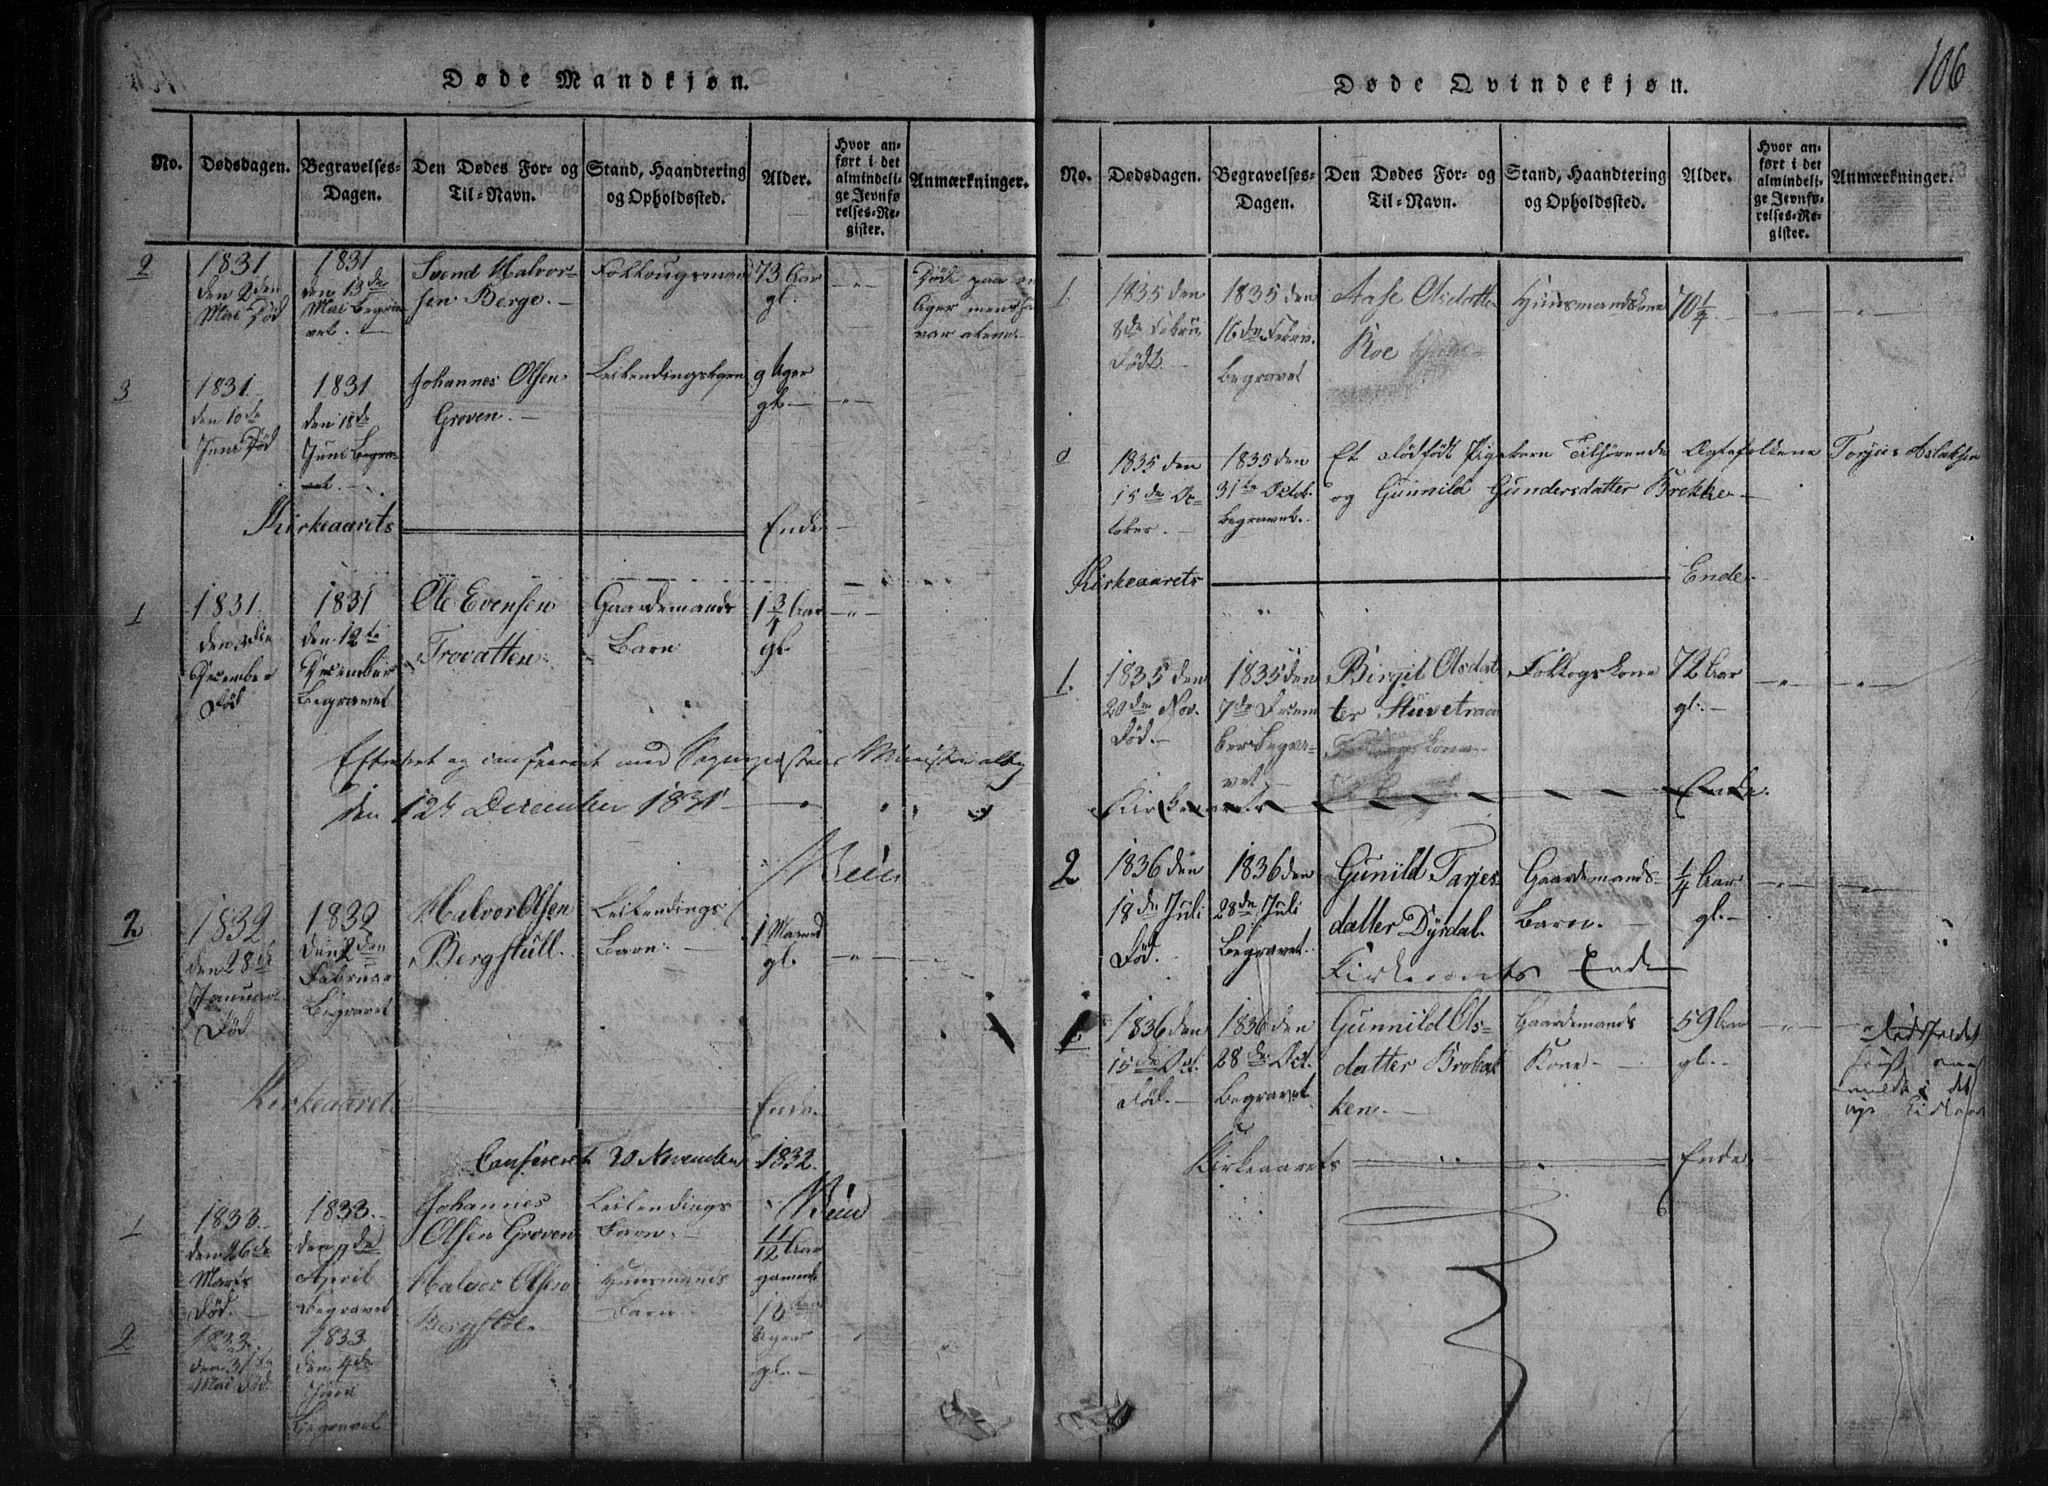 106
Døde Mandkjøn.
No.
Dødsdagen.
Begravelses-
Dagen.
Den Dødes For- og
Til-Navn.
Stand, Haandtering
og Opholdssted.
Alder.
Hvor an-
ført i det
almindeli-
ge Jevnfø-
relses-Re-
gister.
Anmærkninger.
2
1831
den 2den
Mai Død
1831
den 13de
Mai Begra
vet.
Svend Halvor-
sen Berge.
73 Aar
gl.
Døde paa
var
3
1831.
den 10de
Juni Død
1831
den 18de
Juni Begra-
vet.
Johannes Olsen
Groven.
Leilendingsbarn
9 Uger
gl.
Kirkeaarets Ende
1
1831.
den
December
Død
1831
den 12te
December
Begravet
Ole Evensen
Trovatten.
Gaardemands
Barn
1 3/4 Aar
gl.
Efterseet og conferert med
den 12te December 1831
2
1832
den 28de
Januar
Død
1832
den 2den
Februar
Begravet
Halvor Olsen
Bergstull.
Leilendings
Barn.
1 Maaned
gl.
Kirkeaarets Ende.
Confereret 30 November 1832.
1
1833.
den 26de
Marts
Død.
1833.
den
April
Begravet
Johannes
Olsen Groven
Leilendings
Barn.
11/12 Aar
gammel
2
1833.
den 31te
Mai Død.
1833
den 4de
Juni
Begravet
Halvor Olsen
Bergstøl.
Huusmands
Barn.
18
Uger
gl.
Døde Qvindekjøn.
No.
Dødsdagen.
Begravelses-
Dagen.
Den Dødes For- og
Til-Navn.
Stand, Haandtering
og Opholdssted.
Alder.
Hvor an-
ført i det
almindeli-
ge Jevnfø-
relses-Re-
gister.
Anmærkninger.
1.
1835 den
8de Febru
Født.
1835 den
16de Febru.
Begravet
Aase Olsdatter
Roe
Huusmandskone
70 1/4
1835 den
15de Oc-
tober.
1835 den
31te Octob.
Begravet.
Et dødfødt Pigebarn Tilhørende Ægtefolkene Torjus Aslaksen
og Gunnild Gundersdatter Brekke
Kirkeaarets Ende.
1.
1835 den
20de Nov.
Død.
1835 den
7de Decem
ber Begra-
vet
Birgit Olsdat
ter Stuvetraa
Folkogskone
72 Aar
gl.
Kirkeaarets Ende.
2
1836 den
18de Juli
Død.
1836 den
28de Juli
Begravet.
Gunild Tarjes-
datter Dyrdal.
Gaardemands-
Barn.
1/4 Aar
gl.
Kirkeaarets Ende
1
1836 den
15de Oct.
Død.
1836 den
28de Oct.
Begravet
Gunnild Ols-
datter Brobak
ken.
Gaardemands
Kone
59 Aar
gl.
Dødsfaldet
Kirkeaarets Ende.